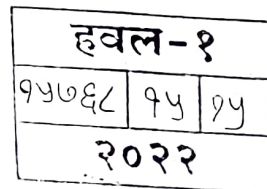 हवल-१
१५७६८ १५ १५
२०२२